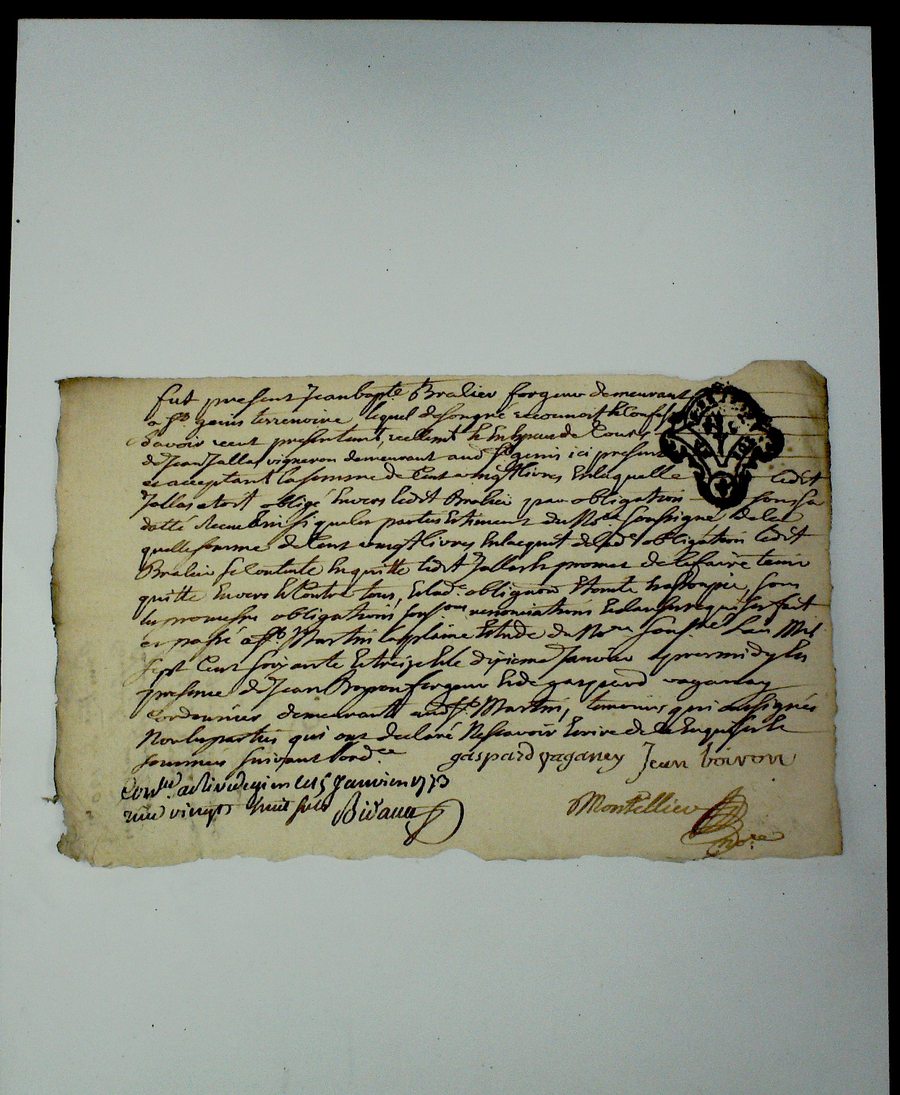 fut present Jean bapte Bralier forgeur demeurant
a St genis terrenoire lequel de son gré reconnoit et Confesse
d'avoir receu presentement, reellement et En Especes de Cours
de Jean Jallas vigneron demeurant aud St genis ici present
et acceptant la somme de Cent vingt livres En laquelle ledit
Jallas etoit obligé Envers ledit Bralier par obligation sous sa
datte Receue ainsi que les parties Estiment du Nore Soussigné, de la
quelle somme de Cent vingt livres En lacquit de lad. obligation ledit
Bralier se Contente En quitte ledit Jallas Et promet de le faire tenir
quitte Envers Et Contre tous, Et lad. obligaon
les promesses obligations renonciations Et clauses requises fait
et passé a St Martin la plaine Etude du Nore Soussne L'an Mil
Sept Cent soixante Et treize Et le dixieme Janvier apres midy En
presence de Jean Boyron forgeur Et de gaspard vaganay
Cordonnier demeurants aud St Martin, temoins qui ont signés
Non les parties qui ont declaré Ne scavoir Ecrire de ce Enquises Et
sommées suivant l'ordce
gaspard vaganey Jean boiron
Conlle a Rivedegier le 15 Janvier 1773
reçu vingt huit sols
Montellier
nore